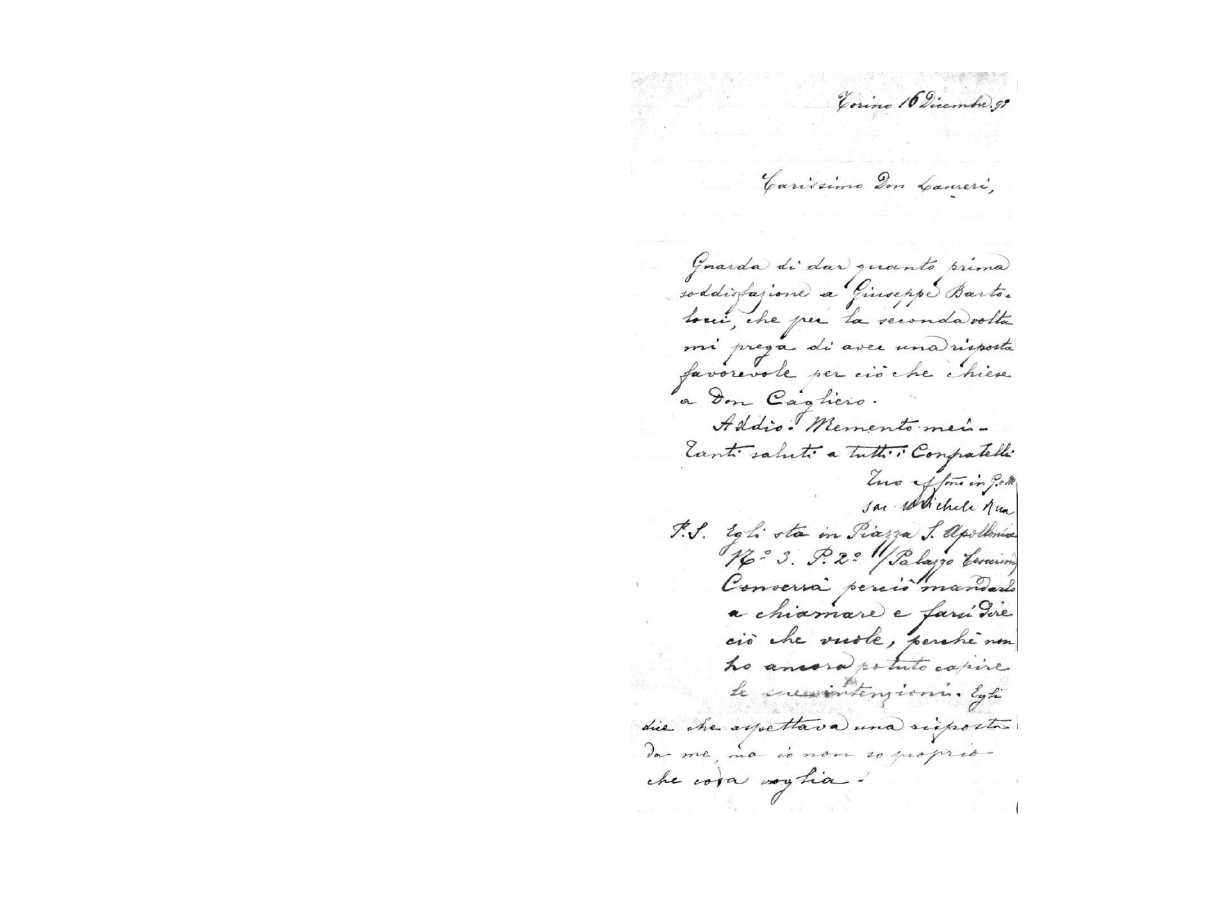 Torino 16 Dicembre 98
Carissimo Don Laureri,
Guarda di dar quanto prima
soddisfazione a Giuseppe Barto-
lucci, che per la seconda volta
mi prega di aver una risposta
favorevole per ciò che chiese
a Don Cagliero.
Addio. Memento mei.
Tanti saluti a tutti i Confratelli
Tuo aff.mo in G. e M.
Sac. Michele Rua
P.S. Egli sta in Piazza S. Apollonia
N.º 3. P. 2º (Palazzo Cesarini)
Converrà perciò mandarlo
a chiamare e farti dire
ciò che vuole, perchè non
ho ancora potuto capire
le sue intenzioni. Egli
dice che aspettava una risposta
da me, ma io non so proprio
che cosa voglia.